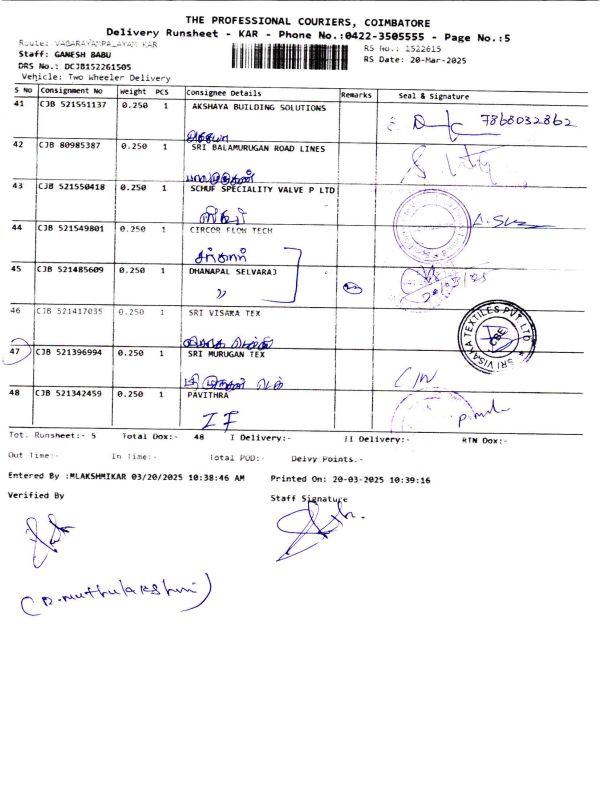 THE PROFESSIONAL COURIERS, COIMBATORE
Delivery Runsheet - KAR - Phone No.:0422-3505555 - Page No.:5
Route: VAGARAYAMPALAYAM KAR
RS No.: 1522615
Staff: GANESH BABU
RS Date: 20-Mar-2025
DRS No.: DCJB152261505
Vehicle: Two Wheeler Delivery
S No Consignment No Weight PCS Consignee Details Remarks Seal & Signature
41 CJB 521551137 0.250 1 AKSHAYA BUILDING SOLUTIONS
7868032862
42 CJB 80985387 0.250 1 SRI BALAMURUGAN ROAD LINES
43 CJB 521550418 0.250 1 SCHUF SPECIALITY VALVE P LTD
44 CJB 521549801 0.250 1 CIRCOR FLOW TECH
45 CJB 521485609 0.250 1 DHANAPAL SELVARAJ
"
20/03/25
46 CJB 521417035 0.250 1 SRI VISAKA TEX
SRI VISAKA TEXTILES PVT LTD
CBE
47 CJB 521396994 0.250 1 SRI MURUGAN TEX
48 CJB 521342459 0.250 1 PAVITHRA
IF
Tot. Runsheet:- 5 Total Dox:- 48 I Delivery:- II Delivery:- RTN Dox:-
Out Time:- In Time:- Total POD:- Delvy Points:-
Entered By :MLAKSHMIKAR 03/20/2025 10:38:46 AM Printed On: 20-03-2025 10:39:16
Verified By Staff Signature
(D. Muthulakshmi)